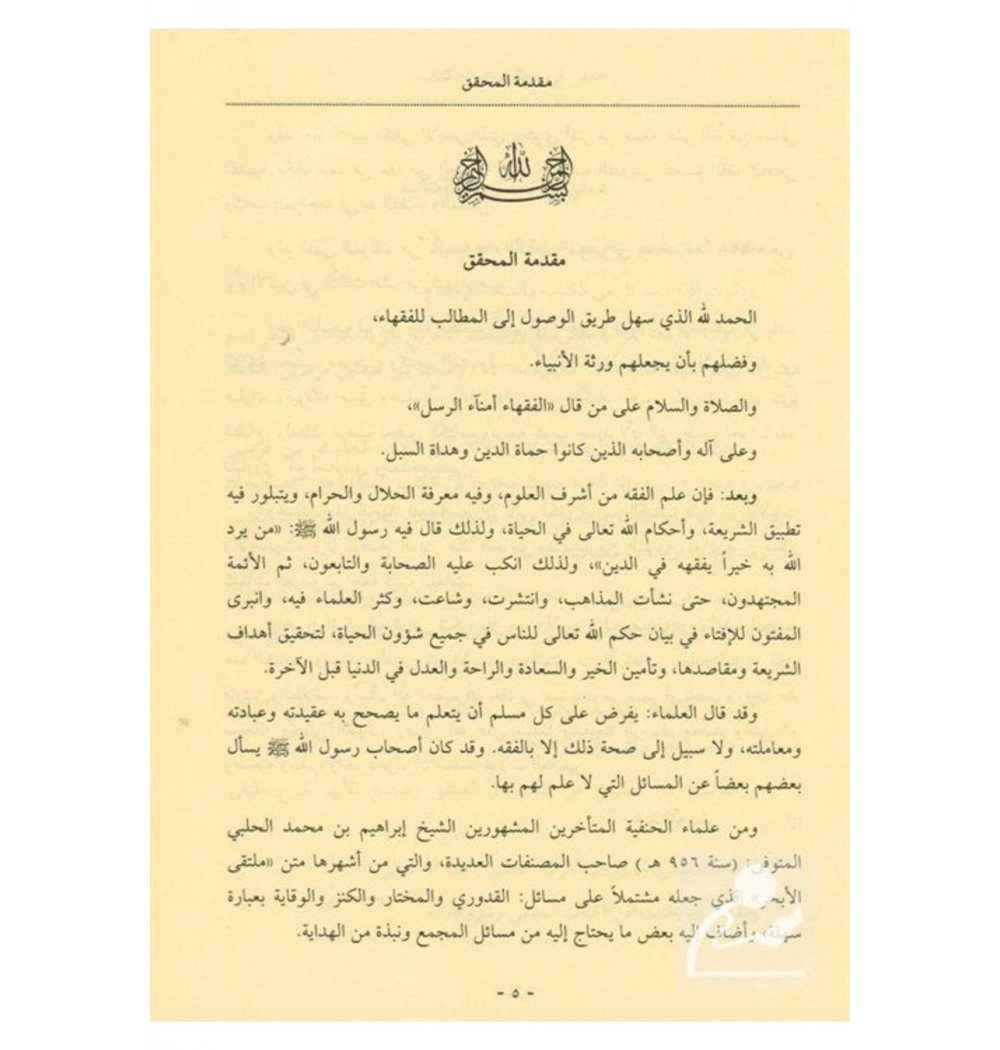 مقدمة المحقق
بسم الله الرحمن الرحيم
مقدمة المحقق
الحمد لله الذي سهل طريق الوصول إلى المطالب للفقهاء،
وفضلهم بأن يجعلهم ورثة الأنبياء.
والصلاة والسلام على من قال «الفقهاء أمنآء الرسل»،
وعلى آله وأصحابه الذين كانوا حماة الدين وهداة السبل.
وبعد: فإن علم الفقه من أشرف العلوم، وفيه معرفة الحلال والحرام، ويتبلور فيه
تطبيق الشريعة، وأحكام الله تعالى في الحياة، ولذلك قال فيه رسول الله ﷺ: «من يرد
الله به خيراً يفقهه في الدين»، ولذلك انكب عليه الصحابة والتابعون، ثم الأئمة
المجتهدون، حتى نشأت المذاهب، وانتشرت، وشاعت، وكثر العلماء فيه، وانبرى
المفتون للإفتاء في بيان حكم الله تعالى للناس في جميع شؤون الحياة، لتحقيق أهداف
الشريعة ومقاصدها، وتأمين الخير والسعادة والراحة والعدل في الدنيا قبل الآخرة.
وقد قال العلماء: يفرض على كل مسلم أن يتعلم ما يصحح به عقيدته وعبادته
ومعاملته، ولا سبيل إلى صحة ذلك إلا بالفقه. وقد كان أصحاب رسول الله ﷺ يسأل
بعضهم بعضاً عن المسائل التي لا علم لهم بها.
ومن علماء الحنفية المتأخرين المشهورين الشيخ إبراهيم بن محمد الحلبي
المتوفى: (سنة ٩٥٦ هـ ) صاحب المصنفات العديدة، والتي من أشهرها متن «ملتقى
الأبحر» الذي جعله مشتملاً على مسائل: القدوري والمختار والكنز والوقاية بعبارة
سهلة، وأضاف إليه بعض ما يحتاج إليه من مسائل المجمع ونبذة من الهداية.
- ٥ -